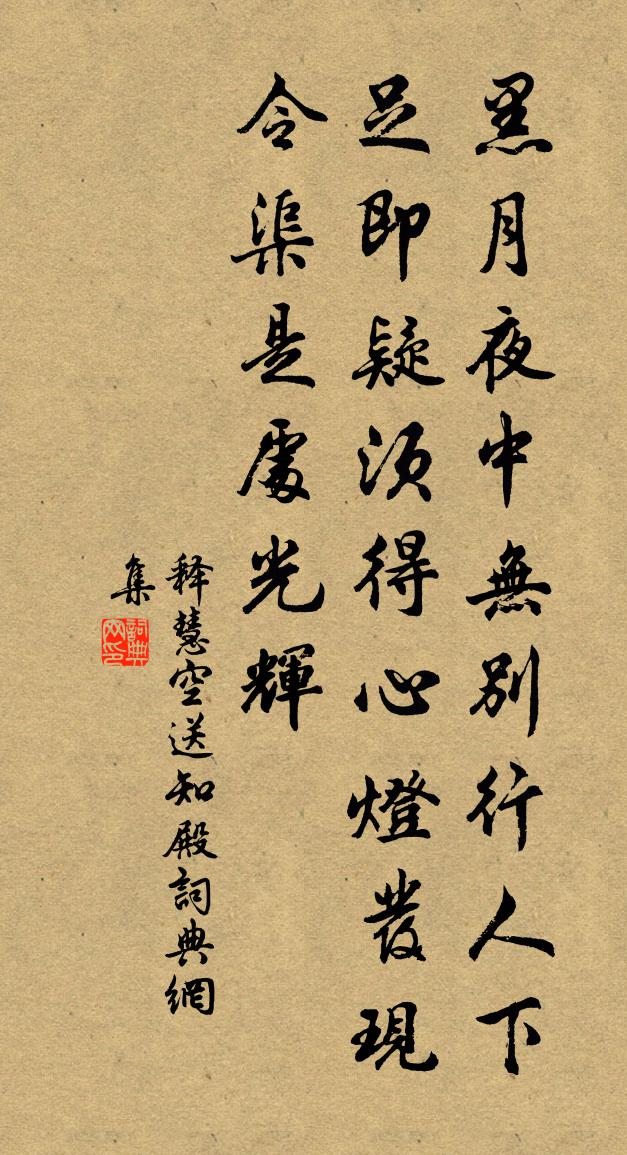 黑月夜中無別行人下
足即疑須得心燈發現
令渠是處光輝
释慧空送知殿詞典網
集
詞典
网印